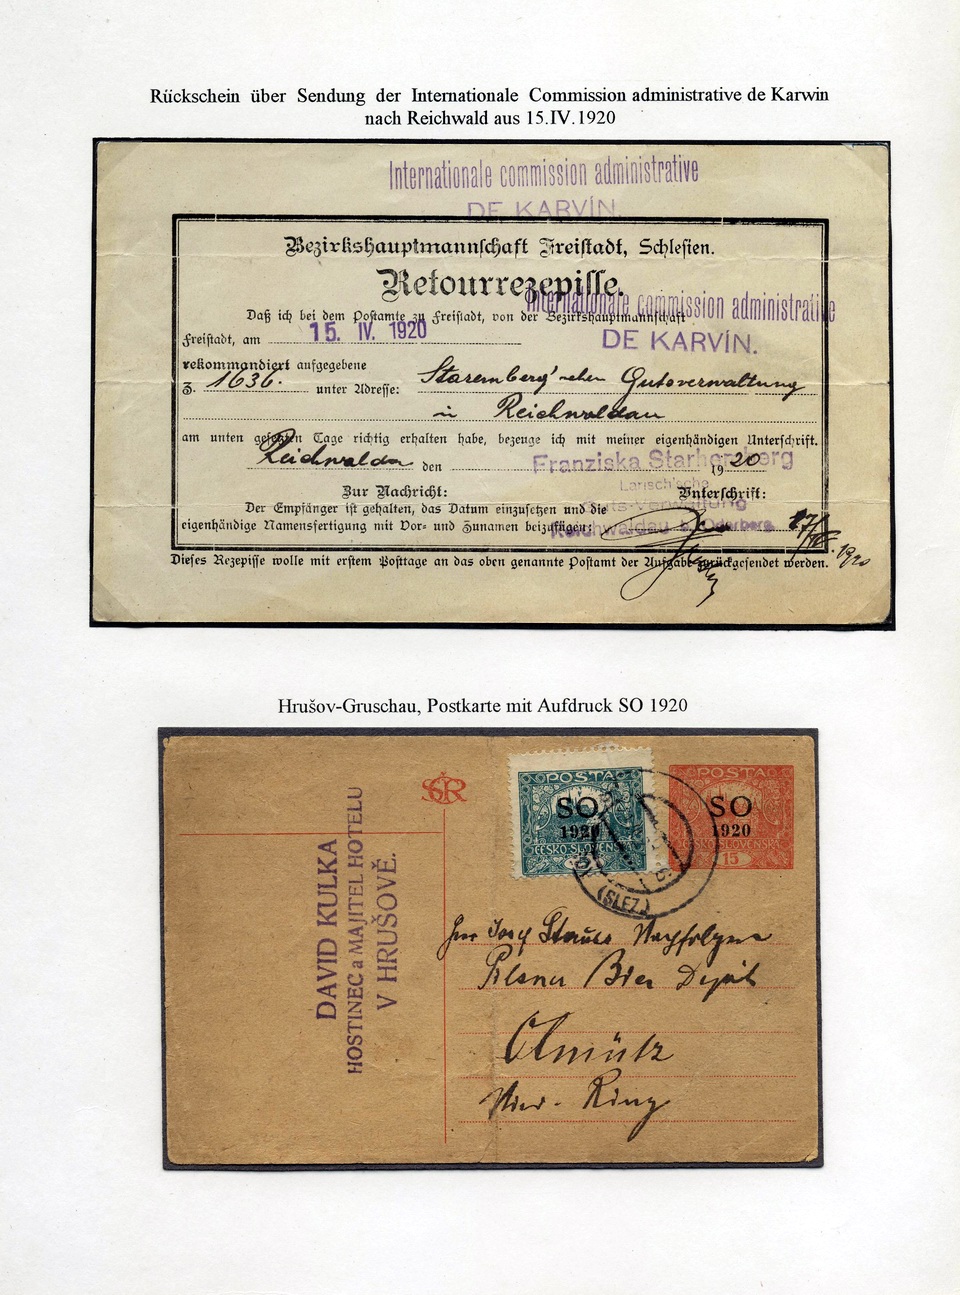 Rückschein über Sendung der Internationale Commission administrative de Karwin
nach Reichwald aus 15.IV.1920
Internationale commission administrative
DE KARVÍN.
Bezirkshauptmannschaft Freistadt, Schlesien.
Retourrezepisse.
Internationale commission administrative
Daß ich bei dem Postamte zu Freistadt, von der Bezirkshauptmannschaft
DE KARVÍN.
Freistadt, am 15. IV. 1920
rekommandiert aufgegebene
Z. 1636. unter Adresse: Staremberg'schen Gutsverwaltung
in Reichwaldau
am unten gesetzten Tage richtig erhalten habe, bezeuge ich mit meiner eigenhändigen Unterschrift.
Reichwalda den 1920
Franziska Starhemberg
Larisch'sche
Zur Nachricht: Unterschrift:
Der Empfänger ist gehalten, das Datum einzusetzen und die
Guts-Verwaltung
eigenhändige Namensfertigung mit Vor- und Zunamen beizufügen:
Reichwaldau b. Oderberg
1920
Dieses Rezepisse wolle mit erstem Posttage an das oben genannte Postamt der Aufgabe zurückgesendet werden.
Hrušov-Gruschau, Postkarte mit Aufdruck SO 1920
DAVID KULKA
HOSTINEC a MAJITEL HOTELU
V HRUŠOVĚ.
ČSR
POSTA
SO
1920
ČESKO-SLOVENSKÁ
POSTA
SO
1920
ČESKO-SLOVENSKÁ
15
(SLEZ.)
Herr Josef Strauss Nachfolger
Pilsner Bier Depôt
Olmütz
Nieder-Ring